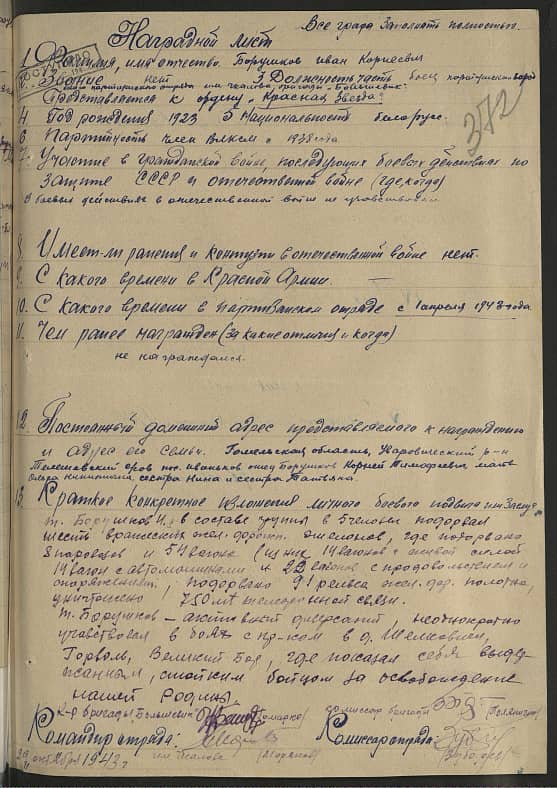 Все графа Заполнять полностью.
Наградной лист
1. Фамилия, имя отчество. Борушков иван Корнеевич
372
2. Звание нет 3. Должность часть боец партизанского
партизанского отряда им. Чкалова, бригады "Большевик"
Представляется к ордену „Красная Звезда"
4. Год рождения 1923 5 Национальность белорус.
6 Партийность член Влксм с 1938 года
7. Участие в гражданской войне, последующих боевых действиях по
защите СССР и отечественной войне (где, когда)
В боевых действиях в отечественной войне не участвовал
8. Имеет-ли ранения и контузии в отечественной войне нет.
9. С какого времени в Красной Армии. —
10. С какого времени в партизанском отряде с 1 апреля 1943 года
11. Чем ранее награжден (за какие отличия и когда)
не награждался.
12. Постоянный домашний адрес представляемого к награждению
и адрес его семьи. Гомельская область, Наровический р-н
отец Борушков Корней Тимофеевич мать
сестра Нина и сестра Татьяна.
13. Краткое конкретное изложения личного боевого подвига или Заслуг
т. Борушков И. в составе группы в 5 человек подорвал
шесть вражеских жел. дорожн. эшелонов, где подорвано
8 паровозов и 54 вагона (из них 14 вагонов с живой силой
14 вагон с автомашинами и 22 вагонов с продовольствием и
снаряжением, подорвано 91 рельса жел. дор. полотна,
уничтожено 750 мт телефонной связи.
т. Борушков – активист диверсант, неоднократно
участвовал в боях с пр-ком в д.
Горваль, Великий Бор, где показал себя выдер
жанным, стойким бойцом за освобождение
нашей Родины
К-р бригады Большевик комиссар бригады
Командир отряда: Комиссар отряда:
октября 1943 г. им Чкалова